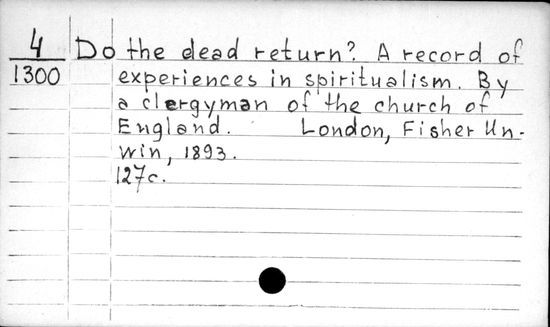 4 Do the dead return? A record of
1300 experiences in spiritualism. By
a clergyman of the church of
England. London, Fisher Un-
win, 1893.
127c.